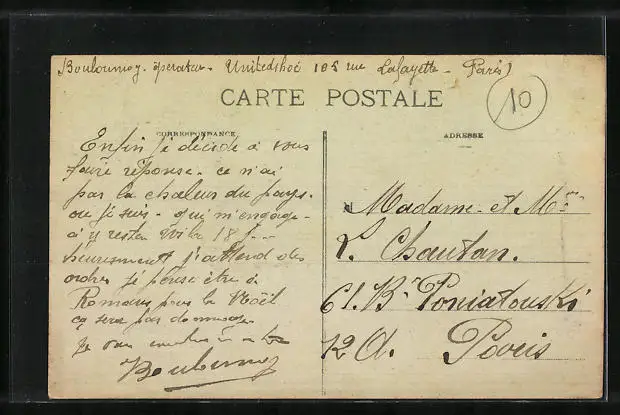 Boulournoy - opérateur - Unitedshoé 105 rue Lafayette - Paris
CARTE POSTALE
10
CORRESPONDANCE
ADRESSE
Enfin je décide à vous
faire réponse - ce n'ai
pas la chaleur du pays -
ou je suis - qui m'engage -
à y rester 18 j
heureusement j'attend des
ordres je pense être à
Romans pour la Noël
ça sera pas dommage
Je vous
Madame et Mr
L. Chautan.
61. Bd Poniatouski
12 A. Paris